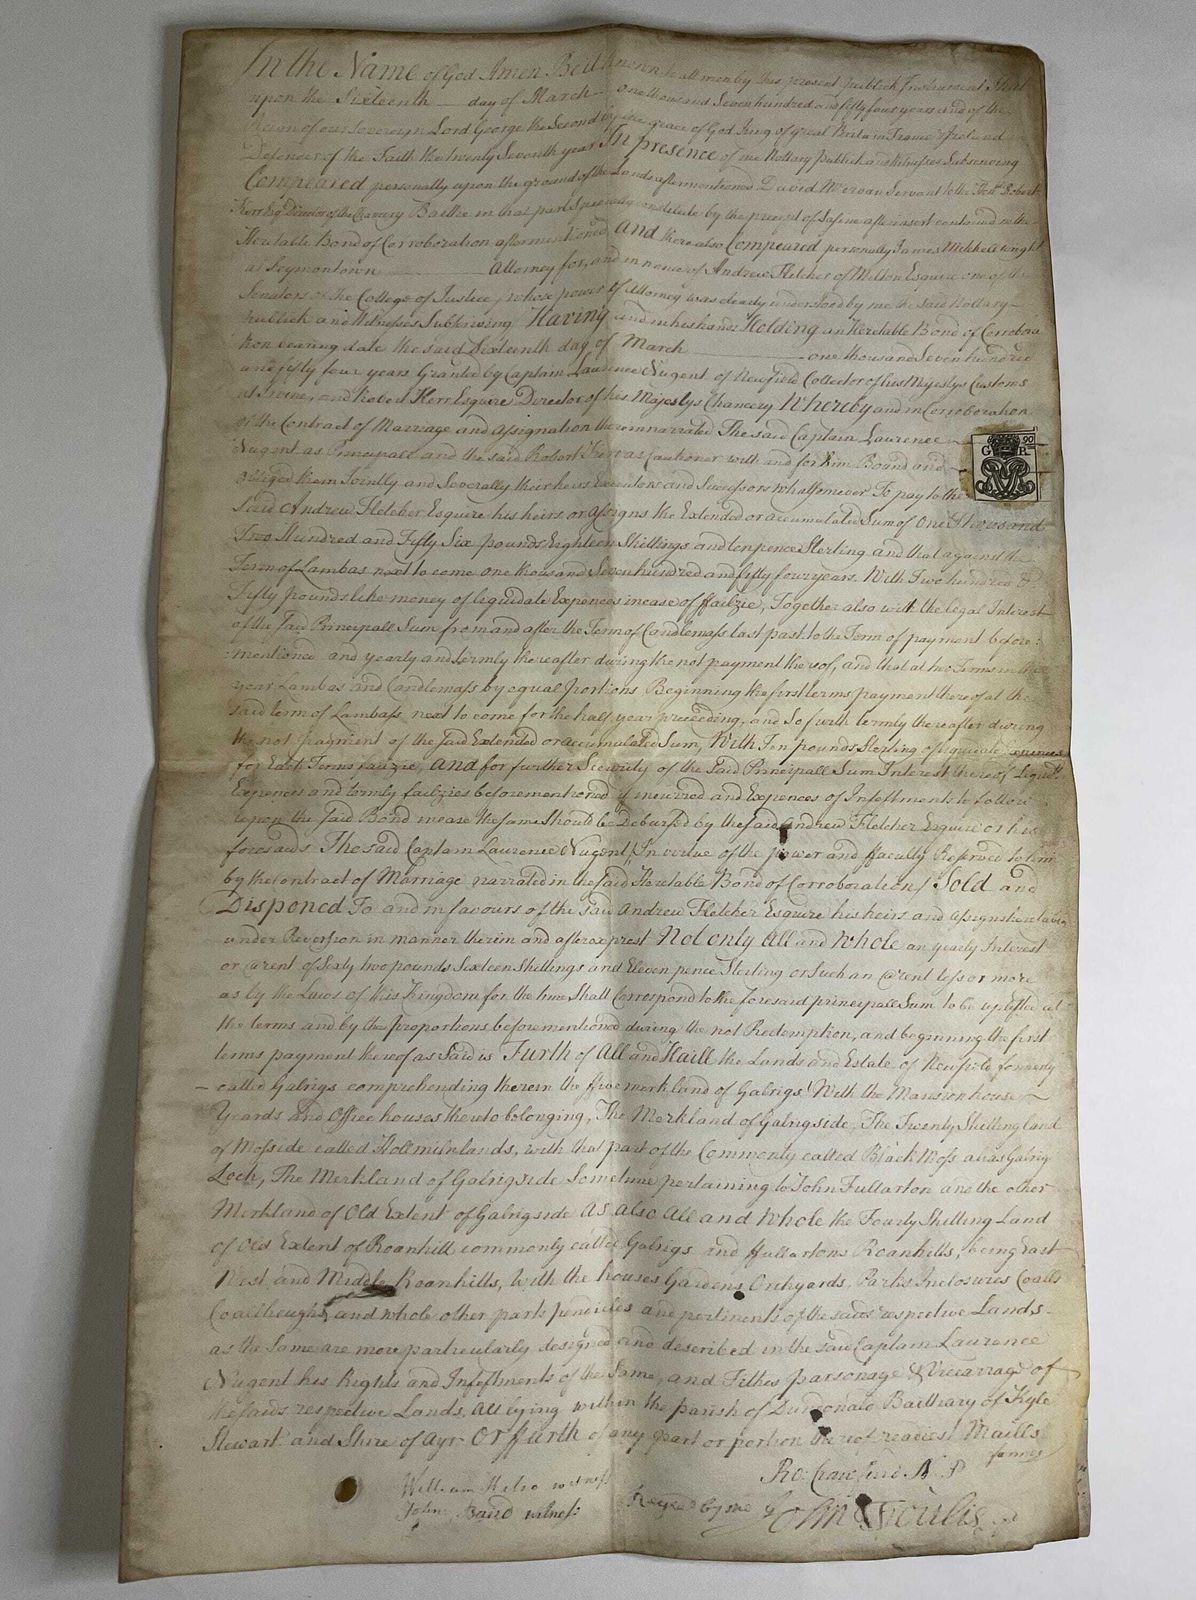 In the Name of God Amen Be it known to all men by this present publick Instrument That
upon the Sixteenth day of March one thousand Seven hundred and fifty four years and of the
Reign of our Sovereign Lord George the Second by the grace of God King of Great Britain France & Ireland
Defender of the Faith the twenty Seventh year In presence of me Nottary Publick and Witnesses Subscriving
Compeared personally upon the ground of the Lands aftermentioned David Servant to the Robert
Kerr Esqr Director of the Chancery Baillie in that part Specially constitute by the precept of Sasine after insert contained in the
Heretable Bond of Corroboration aftermentioned And there also Compeared personally James Mitchell wright
at Symontown Attorney for, and in name of Andrew Fletcher of Milton Esquire one of the
Senators of the College of Justice, whose power of Attorney was clearly understood by me the said Nottary
publick and Witnesses Subscriving Having and in his hands Holding an Heretable Bond of Corrobora
tion bearing date the said Sixteenth day of March one thousand Seven hundred
and fifty four years Granted by Captain Laurence Nugent of Newfield Collector of his Majestys Customs
at Irvine, and Robert Kerr Esquire Director of his Majestys Chancery Whereby and in Corroboration
of the Contract of Marriage and Assignation therein narrated The said Captain Laurence
Nugent as Principall and the said Robert Kerr as Cautioner with and for him Bound and
obliged them Jointly and Severally their heirs Executors and Successors whatsomever To pay to the
Said Andrew Fletcher Esquire his heirs or assigns the Extended or accumulated Sum of One Thousand
Two Hundred and Fifty Six pounds Eighteen Shillings and ten pence Sterling and that against the
Term of Lambas next to come one thousand Seven hundred and fifty four years. With Two hundred &
Fifty pounds like money of liquidate Expences in case of ffailzie, Together also with the legal Interest
of the said Principall Sum from and after the Term of Candlemass last past to the Term of payment before:
:mentioned and yearly and termly thereafter during the not payment thereof, and that at two Terms in the
year Lambas and Candlemass by equal portions Beginning the first terms payment thereof at the
said term of Lambass next to come for the half year preceeding, and So furth termly thereafter during
the not payment of the said Extended or accumulated Sum, With Ten pounds Sterling of liquidate expences
for Each Terms failzie, And for further Security of the said Principall Sum Interest thereof Liquate
Expences and termly failzies beforementioned if incurred and Expences of Infeftments to follow
upon the said Bond incase the same should be Debursed by the said Andrew Fletcher Esquire or his
foresaids The said Captain Laurence Nugent, In virtue of the power and ffaculty Reserved to him
by the contract of Marriage narrated in the said Heretable Bond of Corroboration) Sold and
Disponed To and in favours of the said Andrew Fletcher Esquire his heirs and assigns heretably
under Reversion in manner therein and afterexprest Not only All and Whole an yearly Interest
or arent of Sixty two pounds Sixteen Shillings and Eleven pence Sterling or Such an arent less or more
as by the Laws of this Kingdom for the time Shall Correspond to the foresaid principall Sum to be uplifted at
the terms and by the proportions beforementioned during the not Redemption, and beginning the first
terms payment thereof as Said is Furth of All and Haill the Lands and Estate of Newfield formerly
called Galrigs comprehending therein the five merkland of Galrigs With the Mansion house
Yeards and Office houses thereto belonging, The Merkland of Galrigside, The Twenty Shilling land
of Mosside called Hollmuirlands, with that part of the Commonty called Black Moss alias Galrig
Loch, The Merkland of Galrigside Sometime pertaining to John Fullarton and the other
Merkland of Old Extent of Galrigside As also All and Whole the Fourty Shilling Land
of Old Extent of Roanhill commonly called Galrigs and ffullartons Roanhills, being East
West and Middle Roanhills, With the houses Gardens Orchyards, Parks Inclosures Coalls
Coallheughs, and whole other parts pendicles and pertinents of the saids respective Lands
as the Same are more particularly designed and described in the said Captain Laurence
Nugent his Rights and Infeftments of the Same, and Tithes parsonage & Viccarrage of
the saids respective Lands, All lying within the parish of Dundonald Bailliary of Kyle
Stewart and Shire of Ayr Or ffurth of any part or portion thereof readiest Maills
fermes
Ro: Crawfurd N P
William witness
John Baird witness
by me John Foulis
G R
90